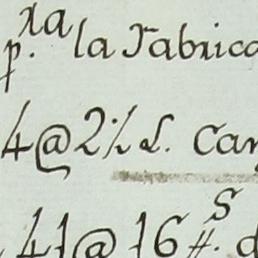 p.ra la Fabrica
4@2½ L. Car
41@16 #.s d